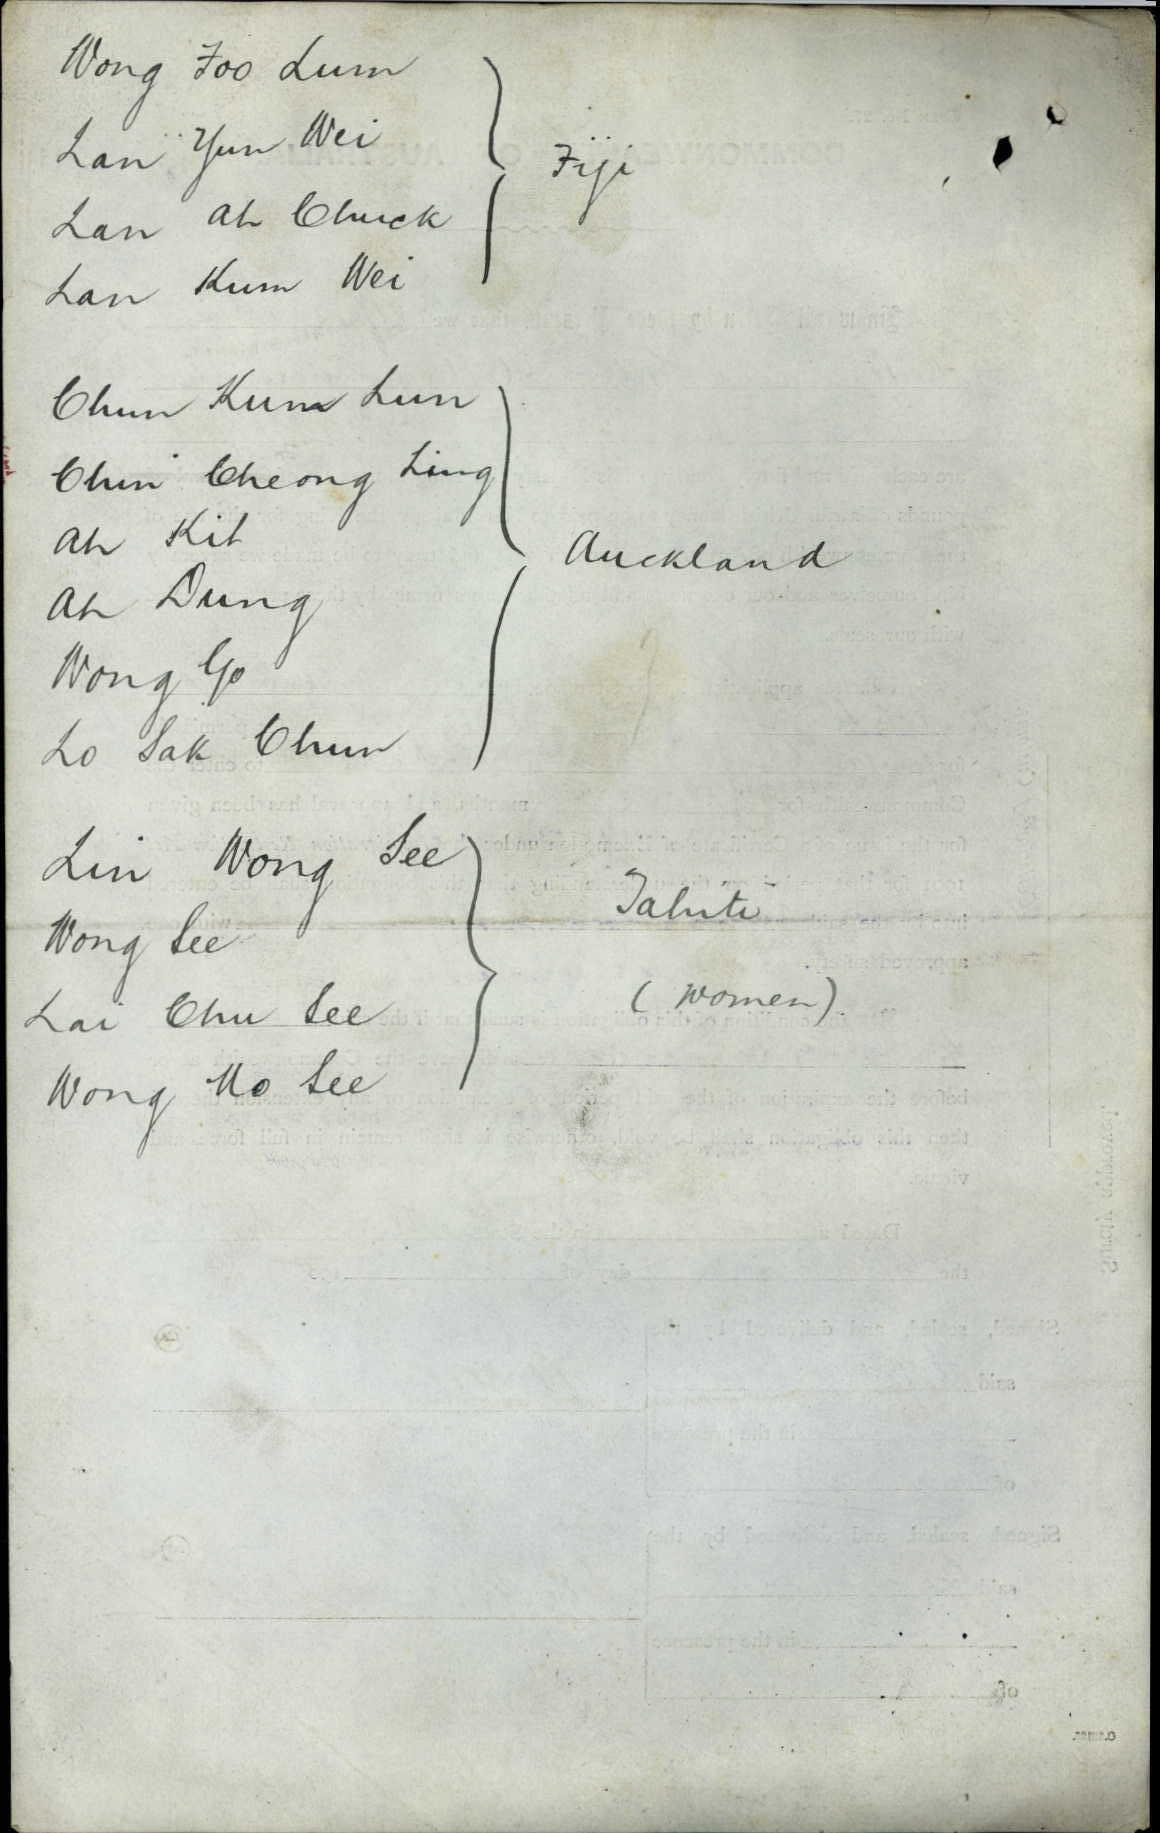 Wong Foo Lum
Lan Yun Wei
Lan Ah Chuck
Lan Kum Wei
Fiji
Chun Kum Lun
Chun Cheong Ling
Ah Kit
Ah Dung
Wong Go
Lo Sak Chun
Auckland
Lin Wong See
Wong See
Lai Chu See
Wong Mo See
Tahiti
(Women)